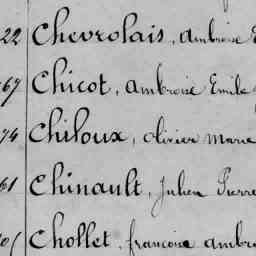 22 Chevrolais, Ambroise E
67 Chicot, Ambroise Emile
74 Chiloux, Olivier Marie
61 Chinault, Julien Pierre
Chollet, françoise ambro